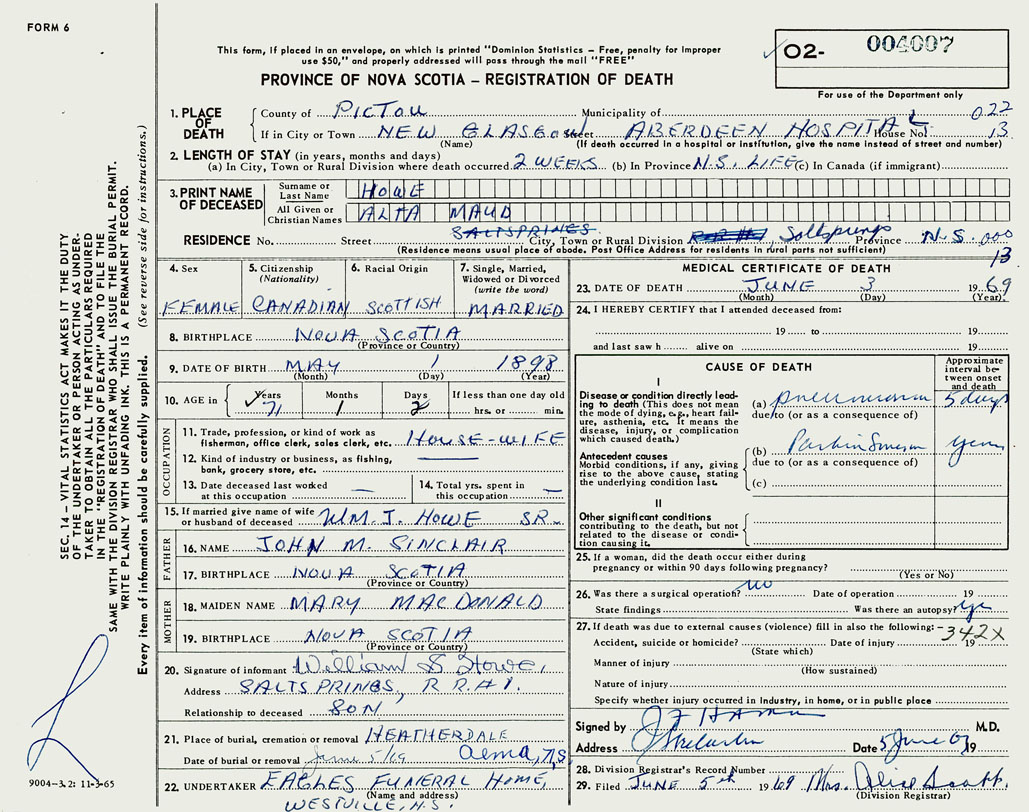 FORM 6
This form, if placed in an envelope, on which is printed "Dominion Statistics – Free, penalty for improper
use $50," and properly addressed will pass through the mail "FREE"
PROVINCE OF NOVA SCOTIA – REGISTRATION OF DEATH
O2- 004007
For use of the Department only
1. PLACE OF DEATH
County of PICTOU Municipality of 022
If in City or Town NEW GLASGOW Street ABERDEEN HOSPITAL House No. 13
(Name) (If death occurred in a hospital or institution, give the name instead of street and number)
2. LENGTH OF STAY (in years, months and days)
(a) In City, Town or Rural Division where death occurred 2 WEEKS (b) In Province N.S. LIFE (c) In Canada (if immigrant)
3. PRINT NAME OF DECEASED
Surname or Last Name HOWE
All Given or Christian Names ALMA MAUD
SALTSPRINGS
RESIDENCE No. Street City, Town or Rural Division Saltsprings Province N.S. 000
(Residence means usual place of abode. Post Office Address for residents in rural parts not sufficient) 13
4. Sex FEMALE
5. Citizenship (Nationality) CANADIAN
6. Racial Origin SCOTTISH
7. Single, Married, Widowed or Divorced (write the word) MARRIED
8. BIRTHPLACE NOVA SCOTIA
(Province or Country)
9. DATE OF BIRTH MAY 1 1898
(Month) (Day) (Year)
10. AGE in Years 71 Months 1 Days 2 If less than one day old
hrs. or min.
OCCUPATION
11. Trade, profession, or kind of work as
fisherman, office clerk, sales clerk, etc. HOUSE-WIFE
12. Kind of industry or business, as fishing,
bank, grocery store, etc. —
13. Date deceased last worked
at this occupation —
14. Total yrs. spent in
this occupation —
15. If married give name of wife
or husband of deceased WM. J. HOWE SR.
FATHER
16. NAME JOHN M. SINCLAIR
17. BIRTHPLACE NOVA SCOTIA
(Province or Country)
MOTHER
18. MAIDEN NAME MARY MACDONALD
19. BIRTHPLACE NOVA SCOTIA
(Province or Country)
20. Signature of informant William S. Howe,
Address SALTSPRINGS, R R #1.
Relationship to deceased SON
21. Place of burial, cremation or removal HEATHERDALE
Date of burial or removal June 5/69 Alma, N,S
22. UNDERTAKER EAGLES FUNERAL HOME,
(Name and address)
WESTVILLE, N.S.
MEDICAL CERTIFICATE OF DEATH
23. DATE OF DEATH JUNE 3 1969
(Month) (Day) (Year)
24. I HEREBY CERTIFY that I attended deceased from:
19 to 19
and last saw h alive on 19
CAUSE OF DEATH
Approximate interval between onset and death
I
Disease or condition directly leading to death (This does not mean
the mode of dying, e.g., heart failure, asthenia, etc. It means the
disease, injury, or complication
which caused death.)
(a) pneumonia 5 days
due to (or as a consequence of)
Antecedent causes
Morbid conditions, if any, giving
rise to the above cause, stating
the underlying condition last.
(b) Parkinsonism years
due to (or as a consequence of)
(c)
II
Other significant conditions
contributing to the death, but not
related to the disease or condition causing it.
25. If a woman, did the death occur either during
pregnancy or within 90 days following pregnancy?
(Yes or No)
26. Was there a surgical operation? no Date of operation 19
State findings Was there an autopsy?
27. If death was due to external causes (violence) fill in also the following: -342X
Accident, suicide or homicide? Date of injury 19
(State which)
Manner of injury
(How sustained)
Nature of injury
Specify whether injury occurred in Industry, in home, or in public place
Signed by M.D.
Address Date 5 June 69 19
28. Division Registrar's Record Number
29. Filed JUNE 5th 1969 Mrs. Alice Scott.
(Division Registrar)
SEC. 14 – VITAL STATISTICS ACT MAKES IT THE DUTY
OF THE UNDERTAKER OR PERSON ACTING AS UNDERTAKER
TO OBTAIN ALL THE PARTICULARS REQUIRED
IN THE "REGISTRATION OF DEATH" AND TO FILE THE
SAME WITH THE DIVISION REGISTRAR WHO SHALL ISSUE THE BURIAL PERMIT.
WRITE PLAINLY WITH UNFADING INK. THIS IS A PERMANENT RECORD.
Every item of information should be carefully supplied. (See reverse side for instructions.)
9004-3.2: 11-3-65